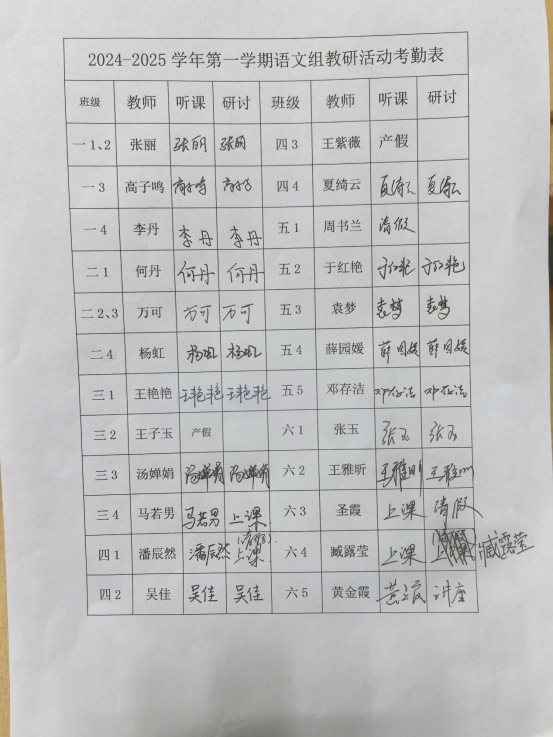 2024-2025 学年第一学期语文组教研活动考勤表
班级 教师 听课 研讨 班级 教师 听课 研讨
一 1、2 张丽 张丽 张丽 四 3 王紫薇 产假
一 3 高子鸣 高子鸣 高子鸣 四 4 夏绮云 夏绮云 夏绮云
一 4 李丹 李丹 李丹 五 1 周书兰 请假
二 1 何丹 何丹 何丹 五 2 于红艳 于红艳 于红艳
二 2、3 万可 万可 万可 五 3 袁梦 袁梦 袁梦
二 4 杨虹 杨虹 杨虹 五 4 薛园媛 薛园媛 薛园媛
三 1 王艳艳 王艳艳 王艳艳 五 5 邓存洁 邓存洁 邓存洁
三 2 王子玉 产假 六 1 张玉 张玉 张玉
三 3 汤婵娟 汤婵娟 汤婵娟 六 2 王雅昕 王雅昕 王雅昕
三 4 马若男 马若男 上课 六 3 圣霞 上课 请假
四 1 潘辰然 潘辰然 上课 六 4 臧露莹 上课 臧露莹
四 2 吴佳 吴佳 吴佳 六 5 黄金霞 黄金霞 讲座